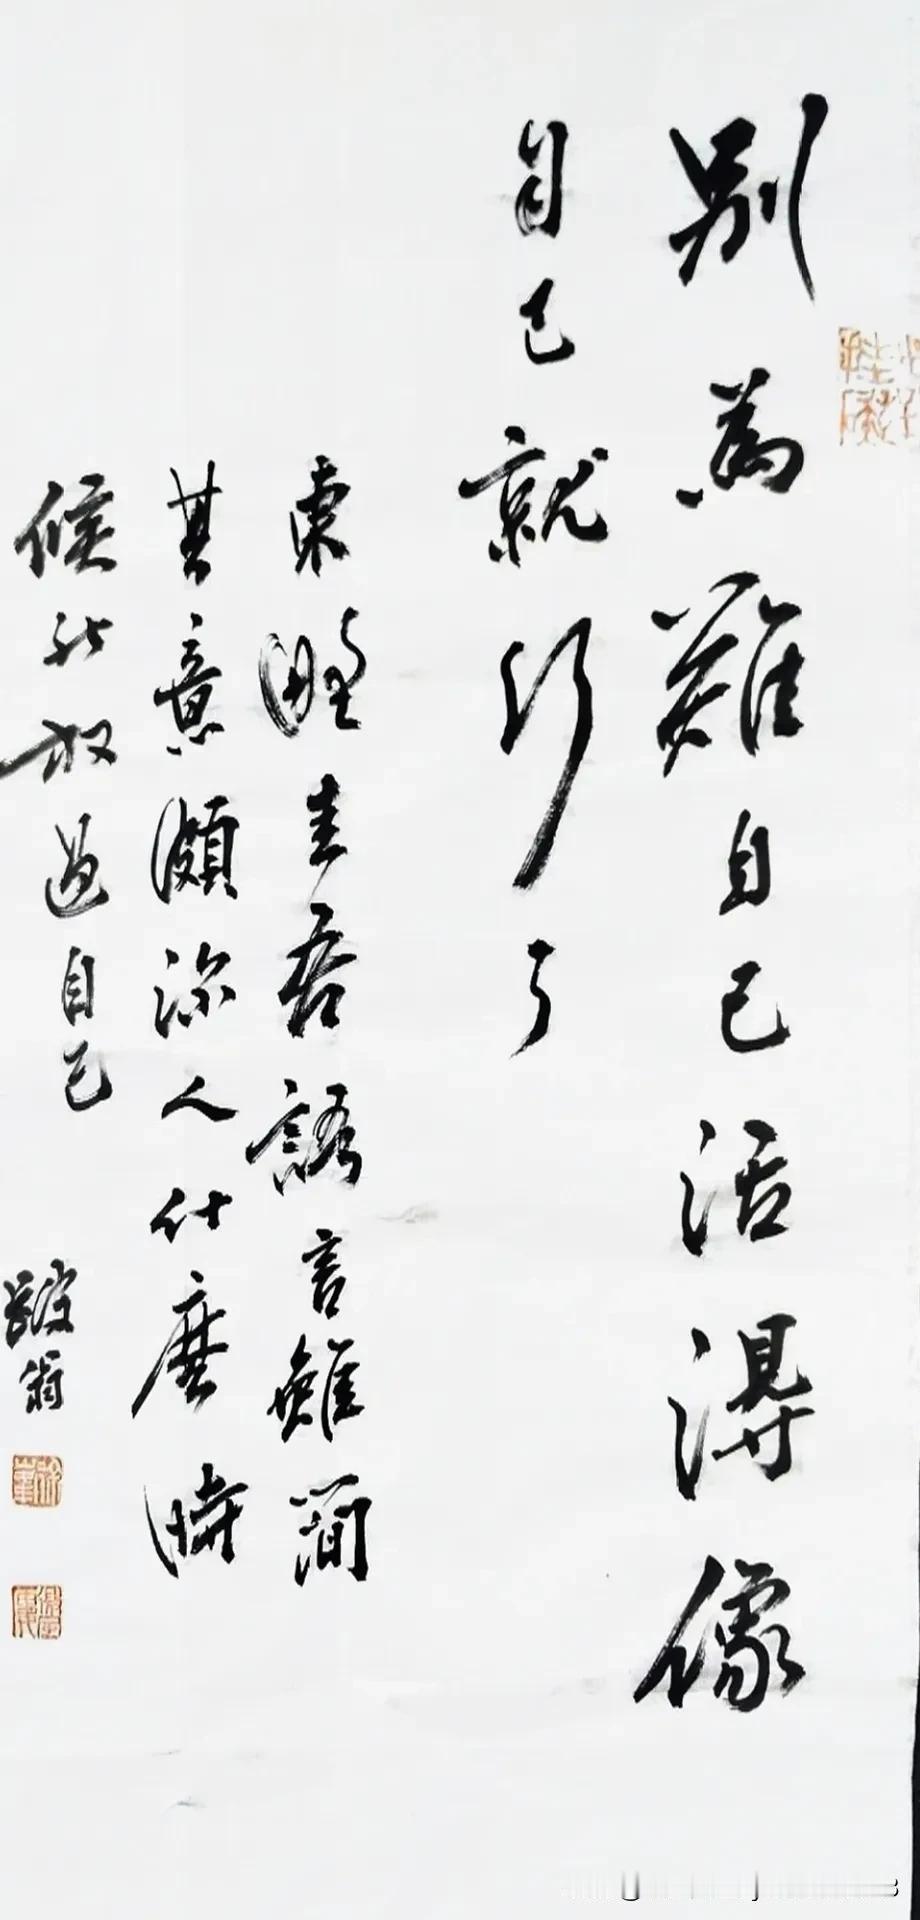 別為難自己活得像
自己就行了
東野圭吾語言雖簡
其意頗深人什麼時
候能放過自己
翁